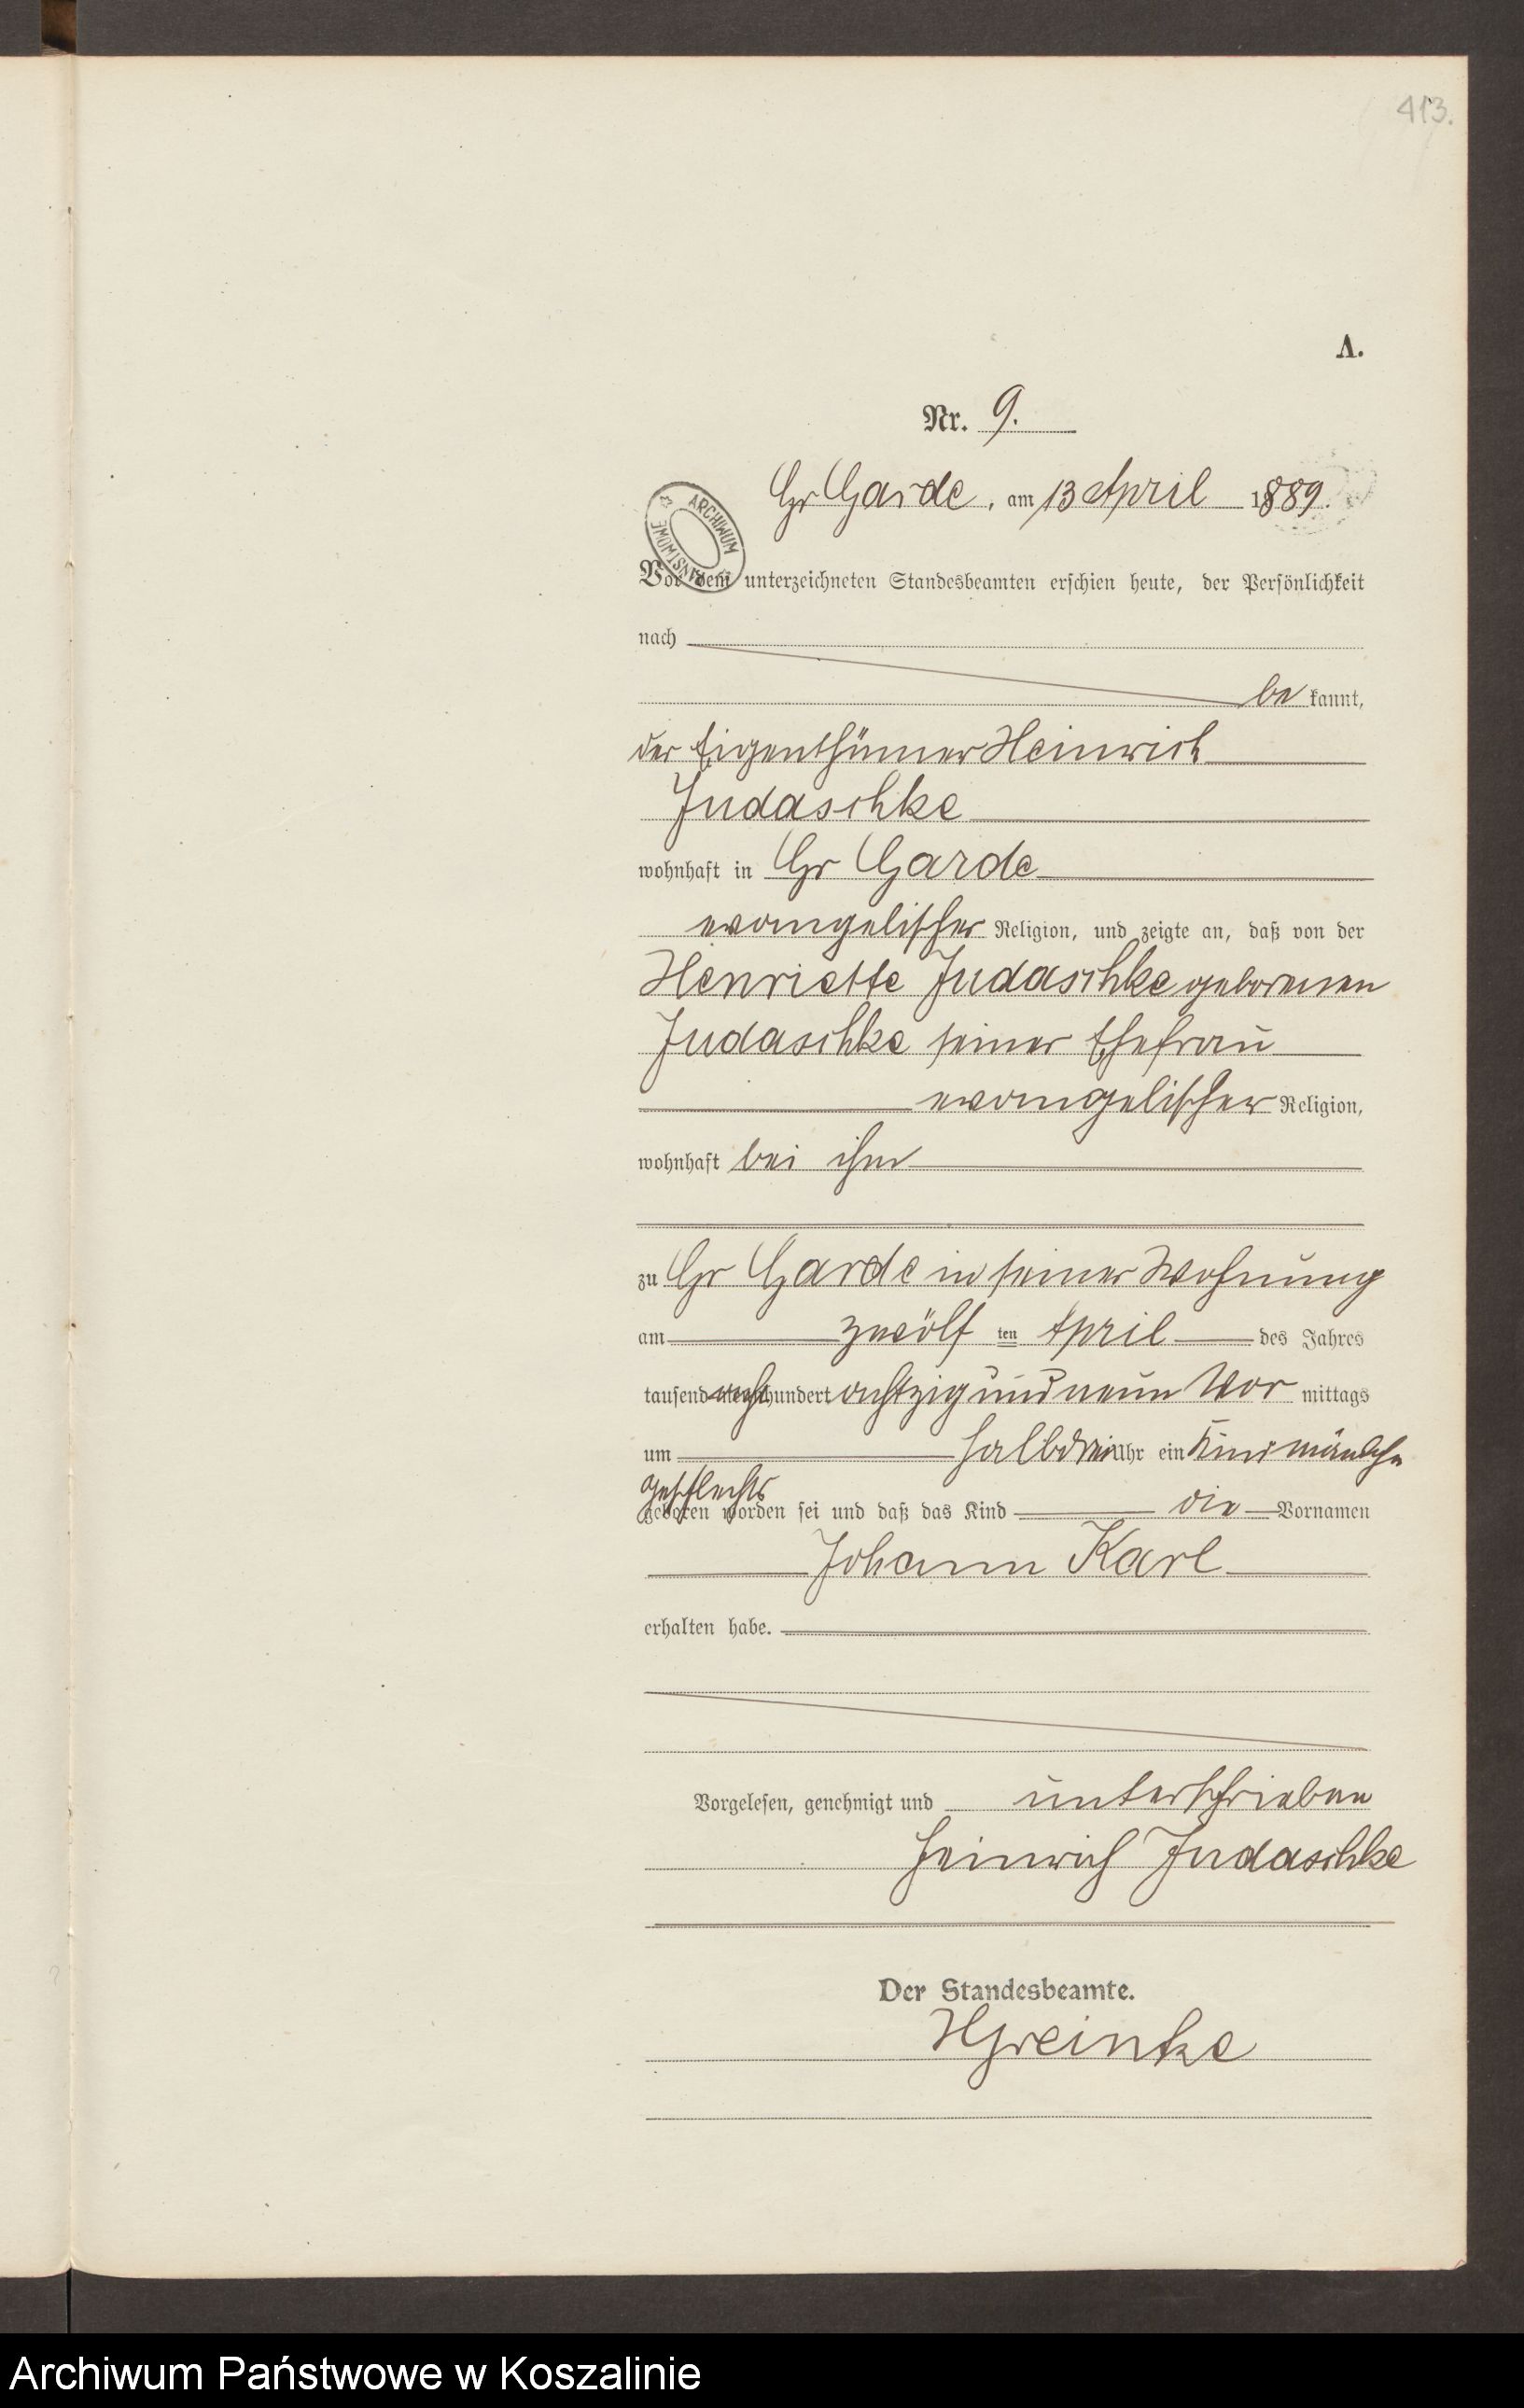 413.
A.
Nr. 9.
Gr Garde, am 13 April 1889.
ARCHIWUM PAŃSTWOWE
Vor dem unterzeichneten Standesbeamten erschien heute, der Persönlichkeit
nach
be kannt,
der Eigenthümer Heinrich
Judaschke
wohnhaft in Gr Garde
evangelischer Religion, und zeigte an, daß von der
Henriette Judaschke geborenen
Judaschke seiner Ehefrau
evangelischer Religion,
wohnhaft bei ihm
zu Gr Garde in seiner Wohnung
am zwölf ten April des Jahres
tausend acht hundert achtzig und neun Vor mittags
um halb drei Uhr ein Kind mänlche
Geschlechts
geboren worden sei und daß das Kind die Vornamen
Johann Karl
erhalten habe.
Vorgelesen, genehmigt und unterschrieben
Heinrich Judaschke
Der Standesbeamte.
HGreinke
Archiwum Państwowe w Koszalinie